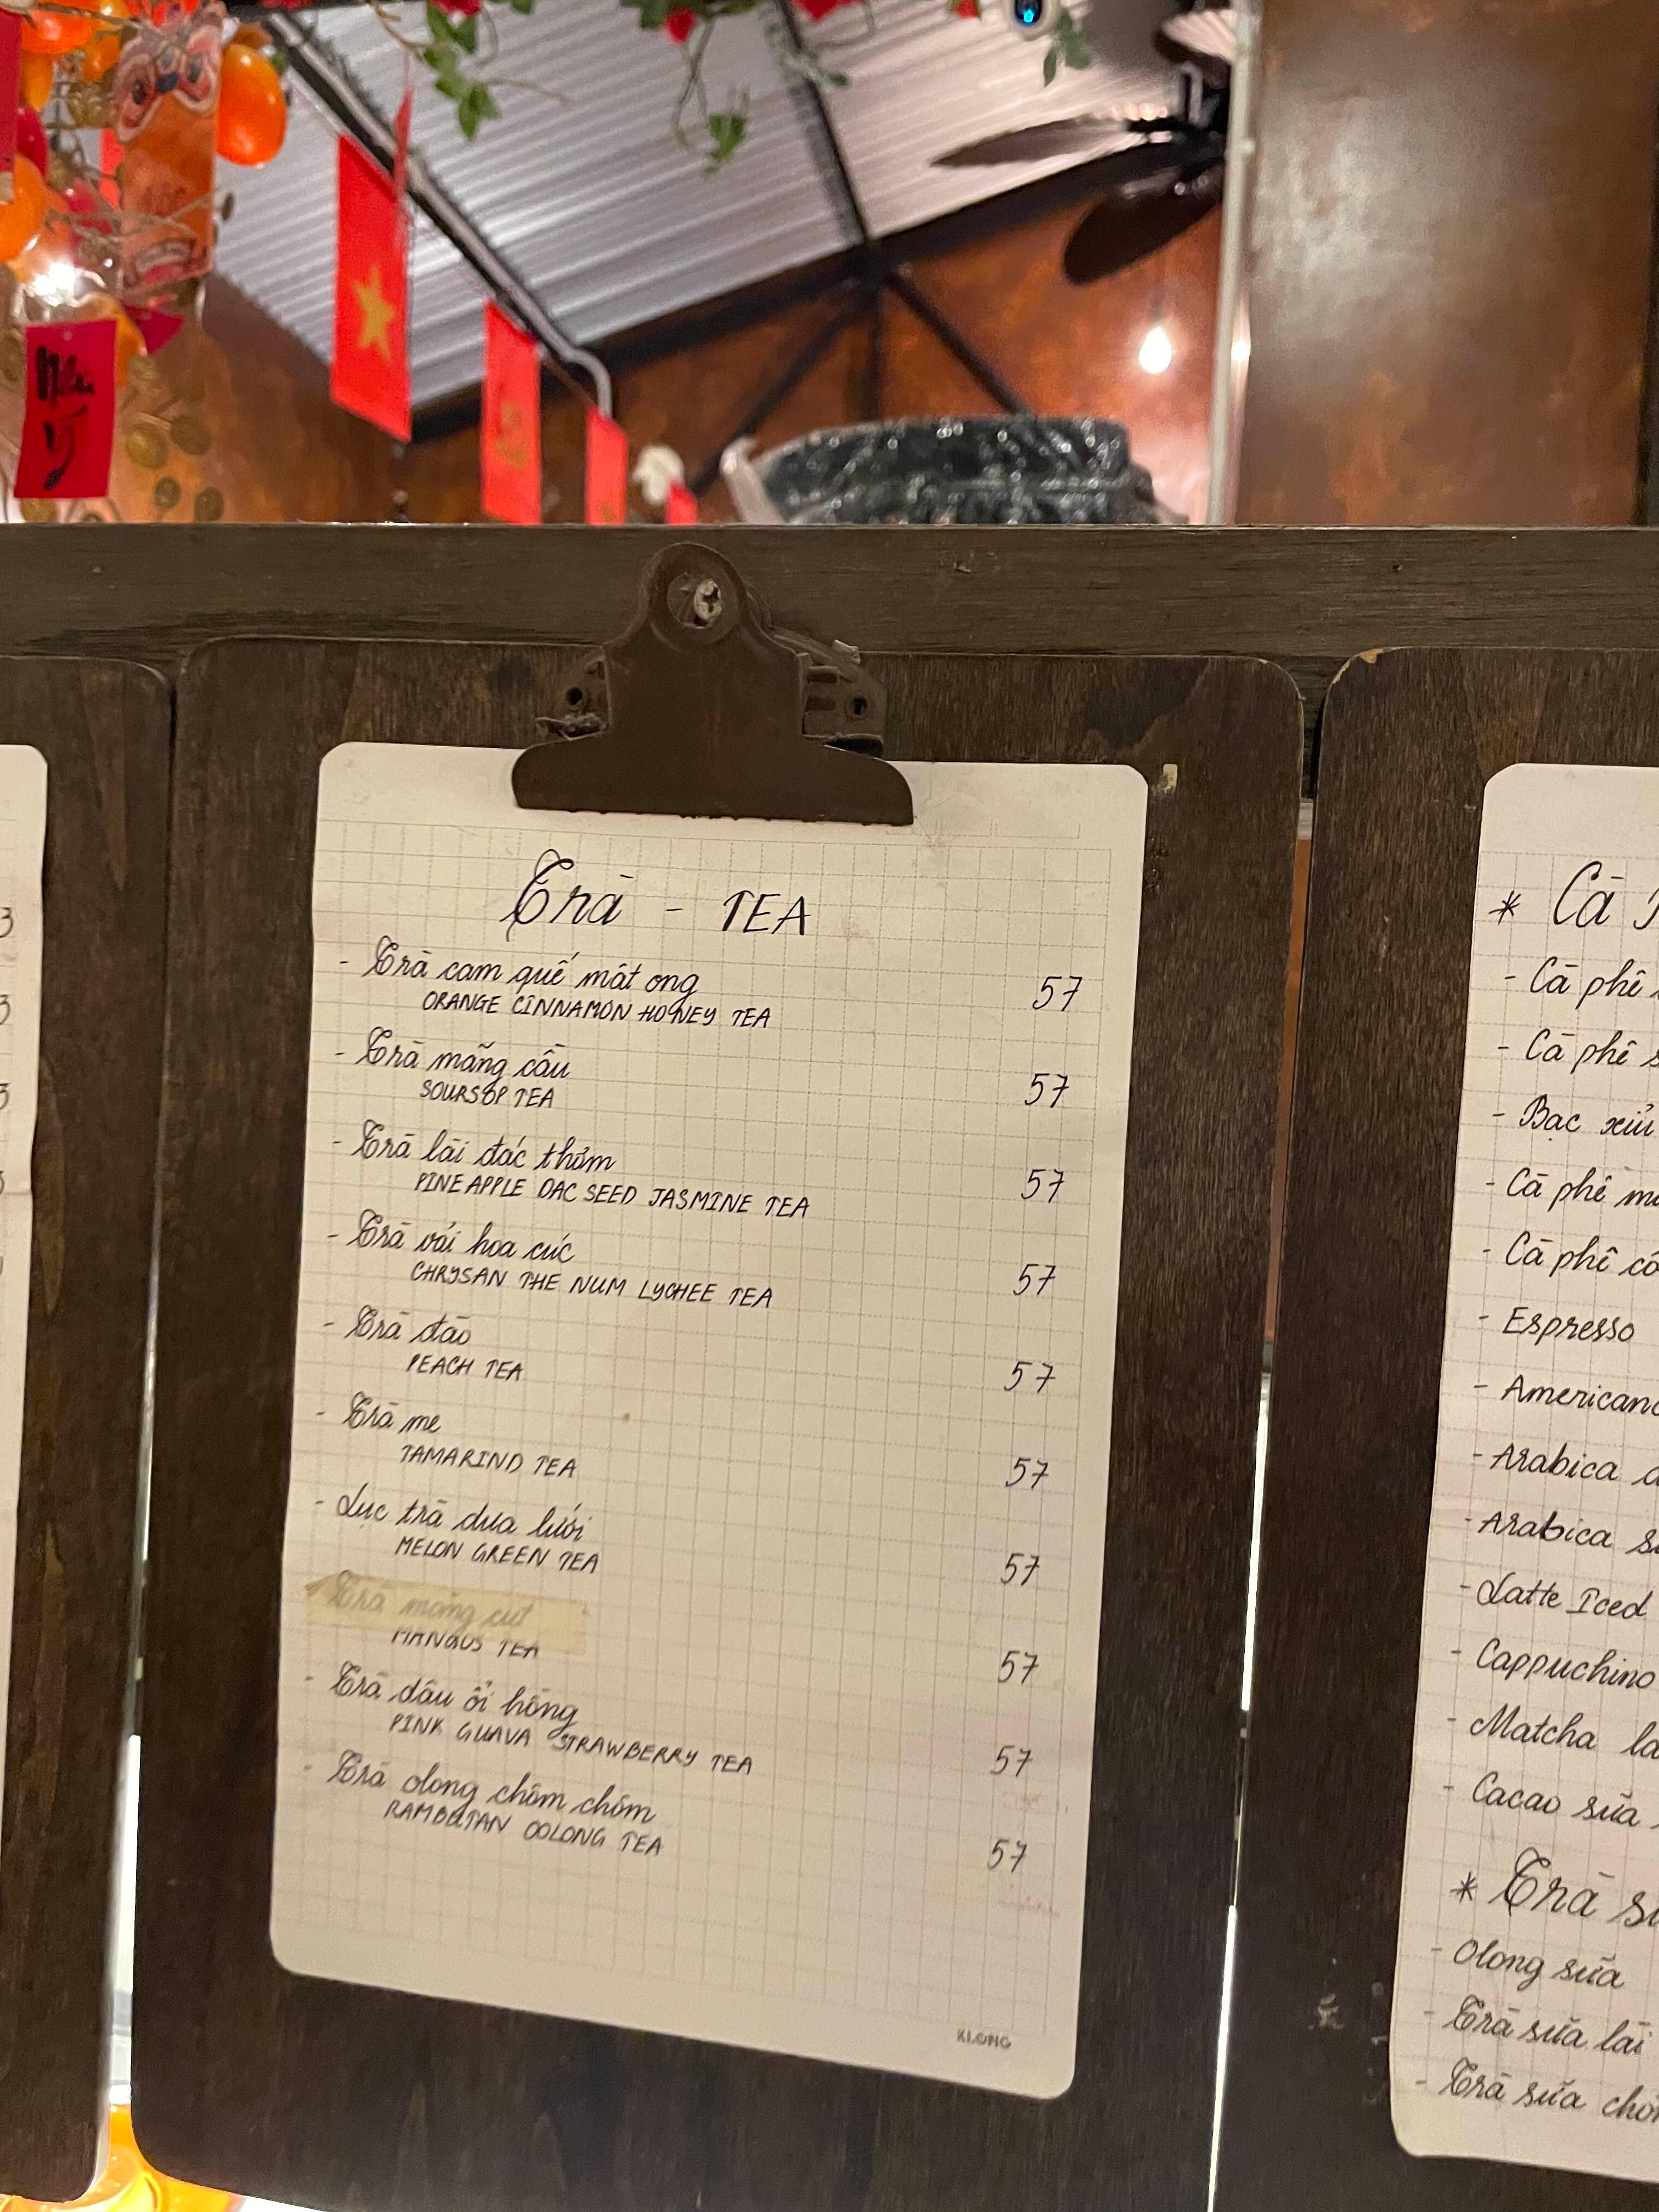 Trà - TEA
- Trà cam quế mật ong 57
ORANGE CINNAMON HONEY TEA
- Trà mãng cầu 57
SOURSOP TEA
- Trà lài đác thơm 57
PINEAPPLE DAC SEED JASMINE TEA
- Trà vải hoa cúc 57
CHRYSAN THE NUM LYCHEE TEA
- Trà đào 57
PEACH TEA
- Trà me 57
TAMARIND TEA
- Lục trà dưa lưới 57
MELON GREEN TEA
Trà măng cụt 57
MANGUS TEA
- Trà dâu ổi hồng 57
PINK GUAVA STRAWBERRY TEA
- Trà olong chôm chôm 57
RAMBUTAN OOLONG TEA
KLONG
* Cà
- Cà phê
- Cà phê
- Bạc xỉu
- Cà phê
- Cà phê
- Espresso
- Americano
- Arabica
- Arabica
- Latte Iced
- Cappuchino
- Matcha
- Cacao sữa
* Trà
- Olong sữa
- Trà sữa lài
- Trà sữa